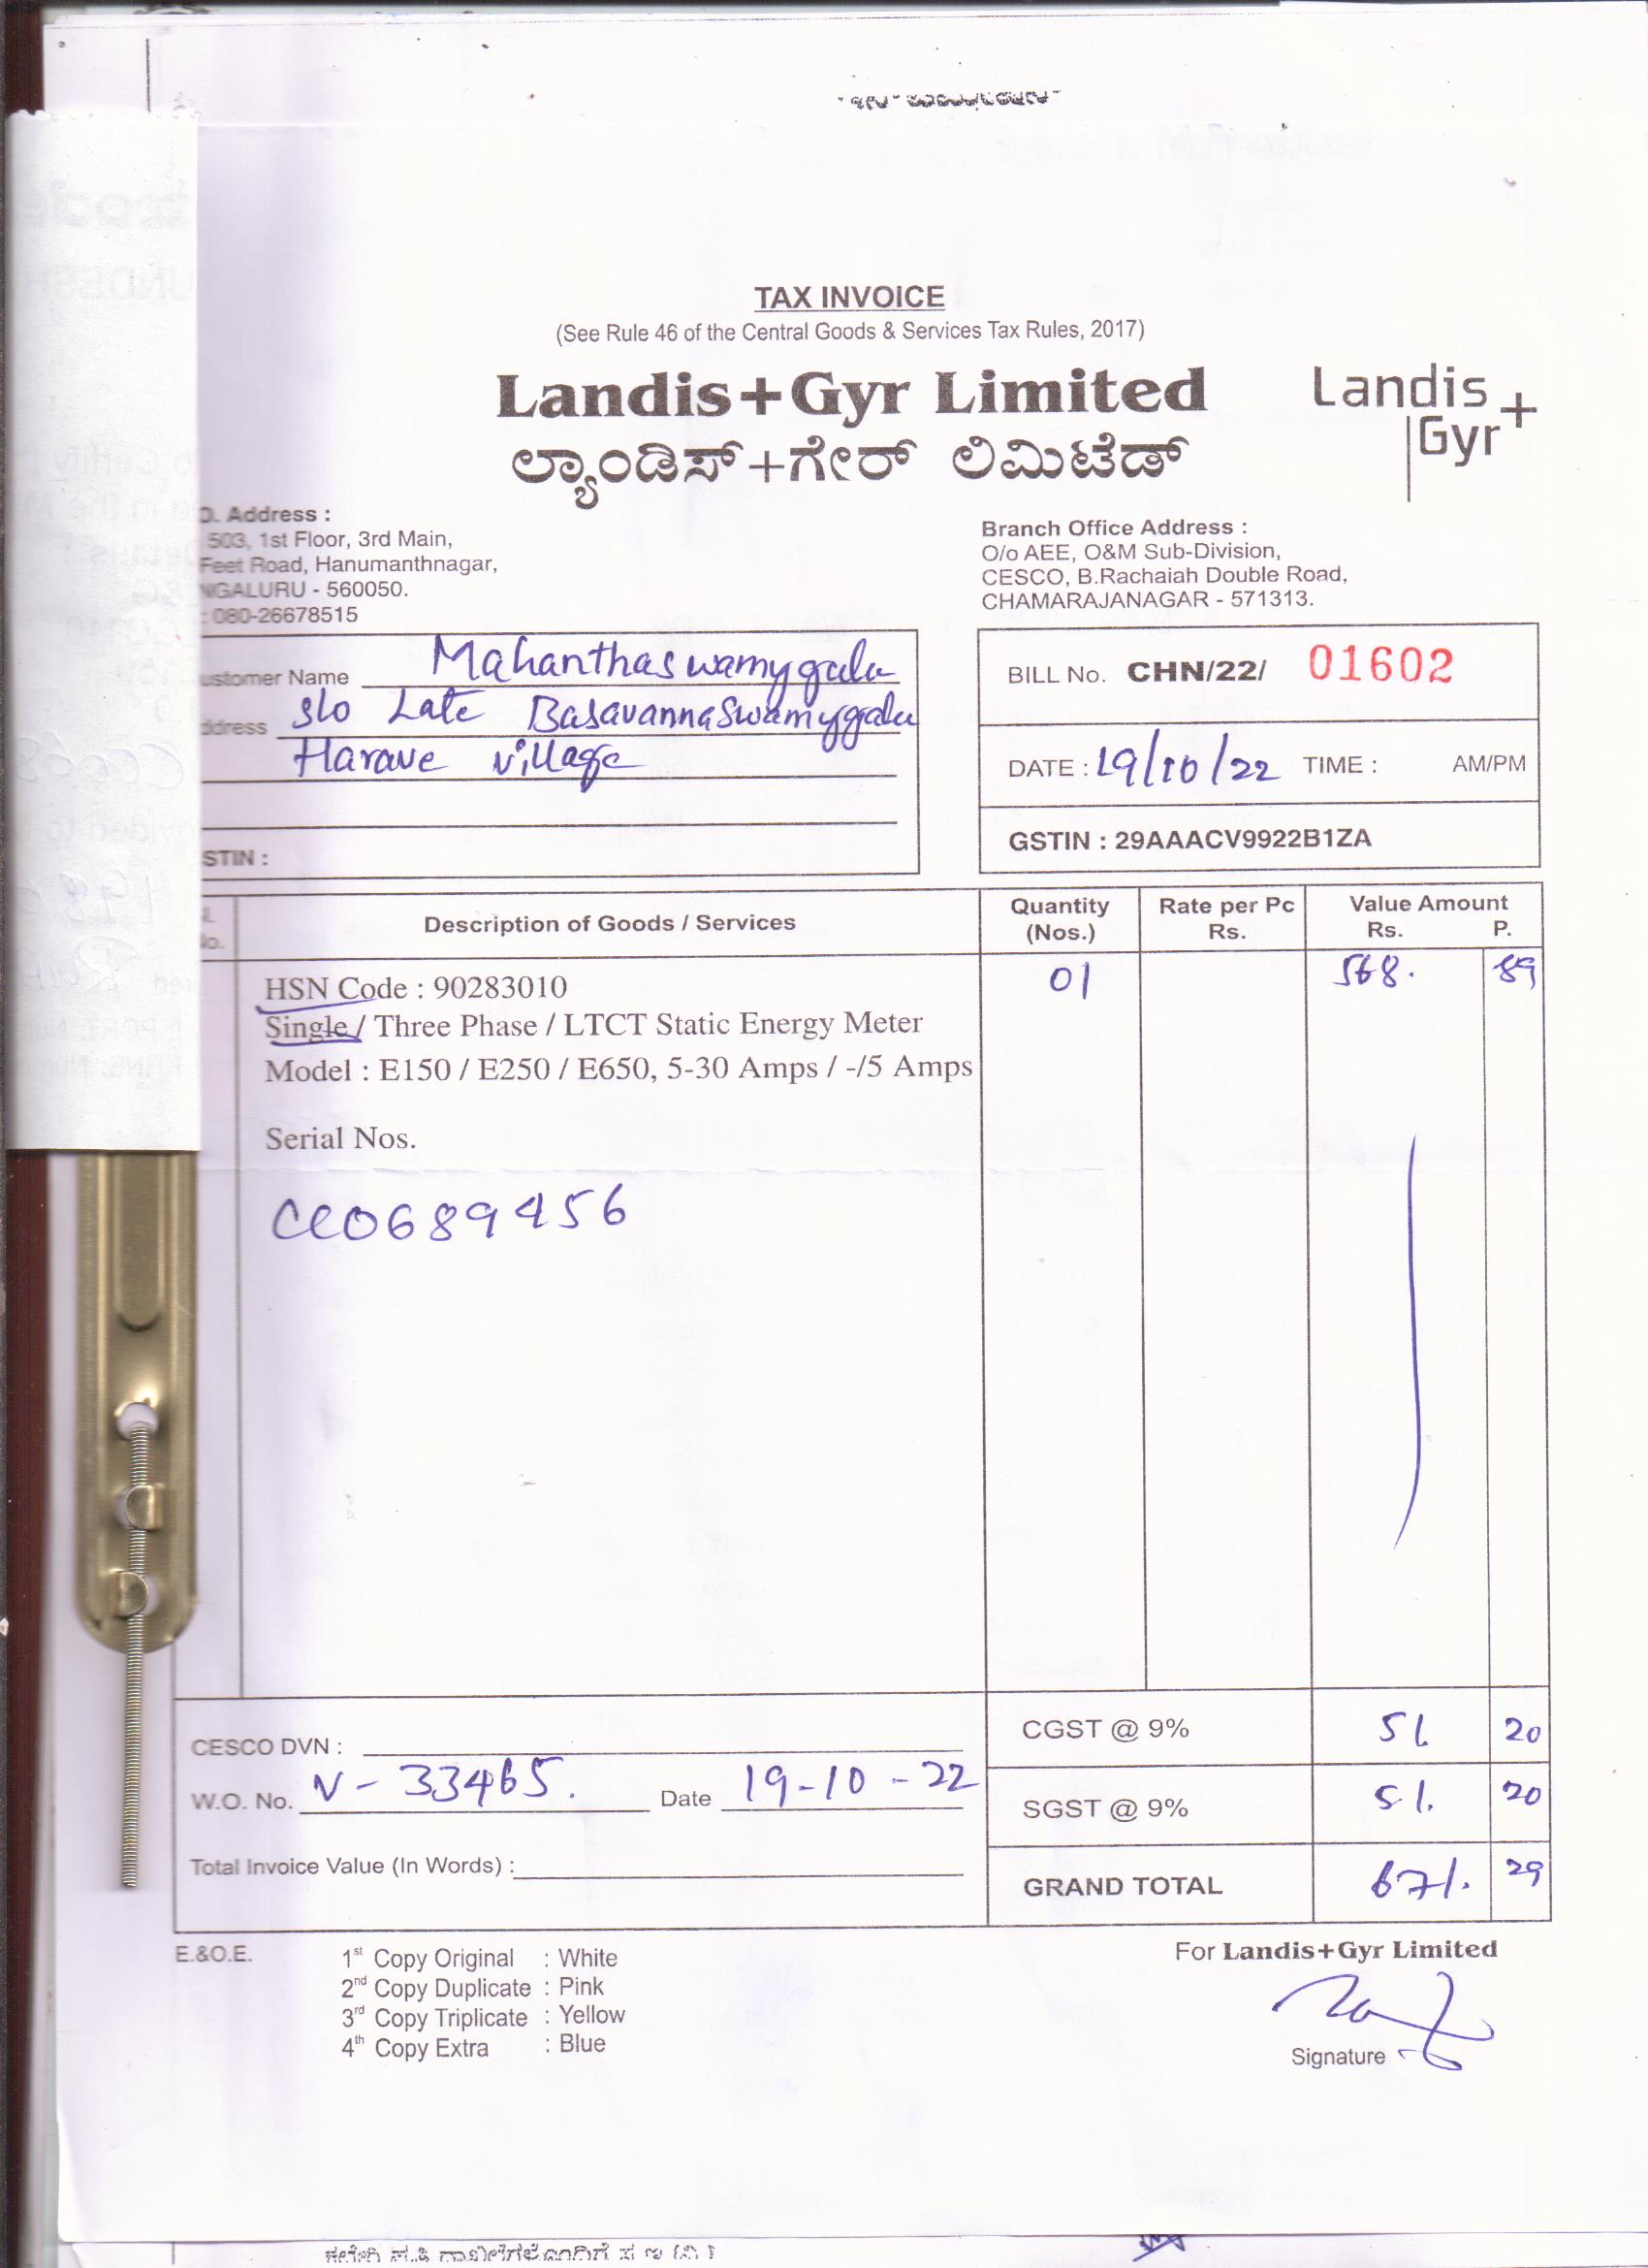 TAX INVOICE
(See Rule 46 of the Central Goods & Services Tax Rules, 2017)
Landis+Gyr Limited
ಲ್ಯಾಂಡಿಸ್+ಗೇರ್ ಲಿಮಿಟೆಡ್
Landis
Gyr+
. Address :
503, 1st Floor, 3rd Main,
Feet Road, Hanumanthnagar,
NGALURU - 560050.
: 080-26678515
Branch Office Address :
O/o AEE, O&M Sub-Division,
CESCO, B.Rachaiah Double Road,
CHAMARAJANAGAR - 571313.
ustomer Name Mahanthaswamygalu
ddress S/o Late Basavannaswamygalu
Harave village
STIN :
BILL No. CHN/22/ 01602
DATE : 19/10/22 TIME : AM/PM
GSTIN : 29AAACV9922B1ZA
o. Description of Goods / Services Quantity (Nos.) Rate per Pc Rs. Value Amount Rs. P.
HSN Code : 90283010 01 568. 89
Single / Three Phase / LTCT Static Energy Meter
Model : E150 / E250 / E650, 5-30 Amps / -/5 Amps
Serial Nos.
CC0689456
CGST @ 9% 51. 20
SGST @ 9% 51. 20
GRAND TOTAL 671. 29
CESCO DVN :
W.O. No. N - 33465. Date 19-10-22
Total Invoice Value (In Words) :
E.&O.E.
1st Copy Original : White
2nd Copy Duplicate : Pink
3rd Copy Triplicate : Yellow
4th Copy Extra : Blue
For Landis+Gyr Limited
Signature